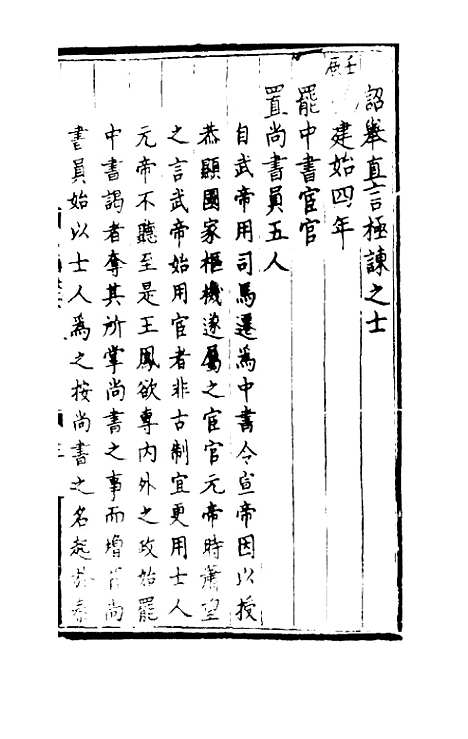 詔舉直言極諫之士
壬辰
建始四年
罷中書宦官
置尚書員五人
自武帝用司馬遷為中書令宣帝因以授
恭顯國家樞機遂屬之宦官元帝時蕭望
之言武帝始用宦者非古制宜更用士人
元帝不聽至是王鳳欲專內外之政始罷
中書謁者奪其所掌尚書之事而增置尚
書員始以士人爲之按尚書之名起於秦